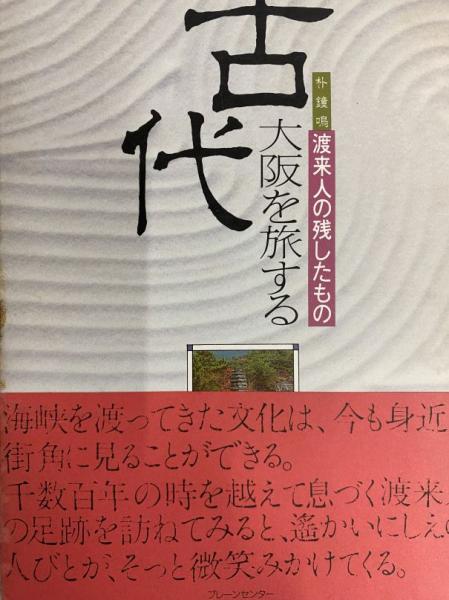 古代
大阪を旅する
朴鐘鳴
渡来人の残したもの
海峡を渡ってきた文化は、今も身近
街角に見ることができる。
千数百年の時を越えて息づく渡来人
の足跡を訪ねてみると、遙かいにしえの
人びとが、そっと微笑みかけてくる。
ブレーンセンター